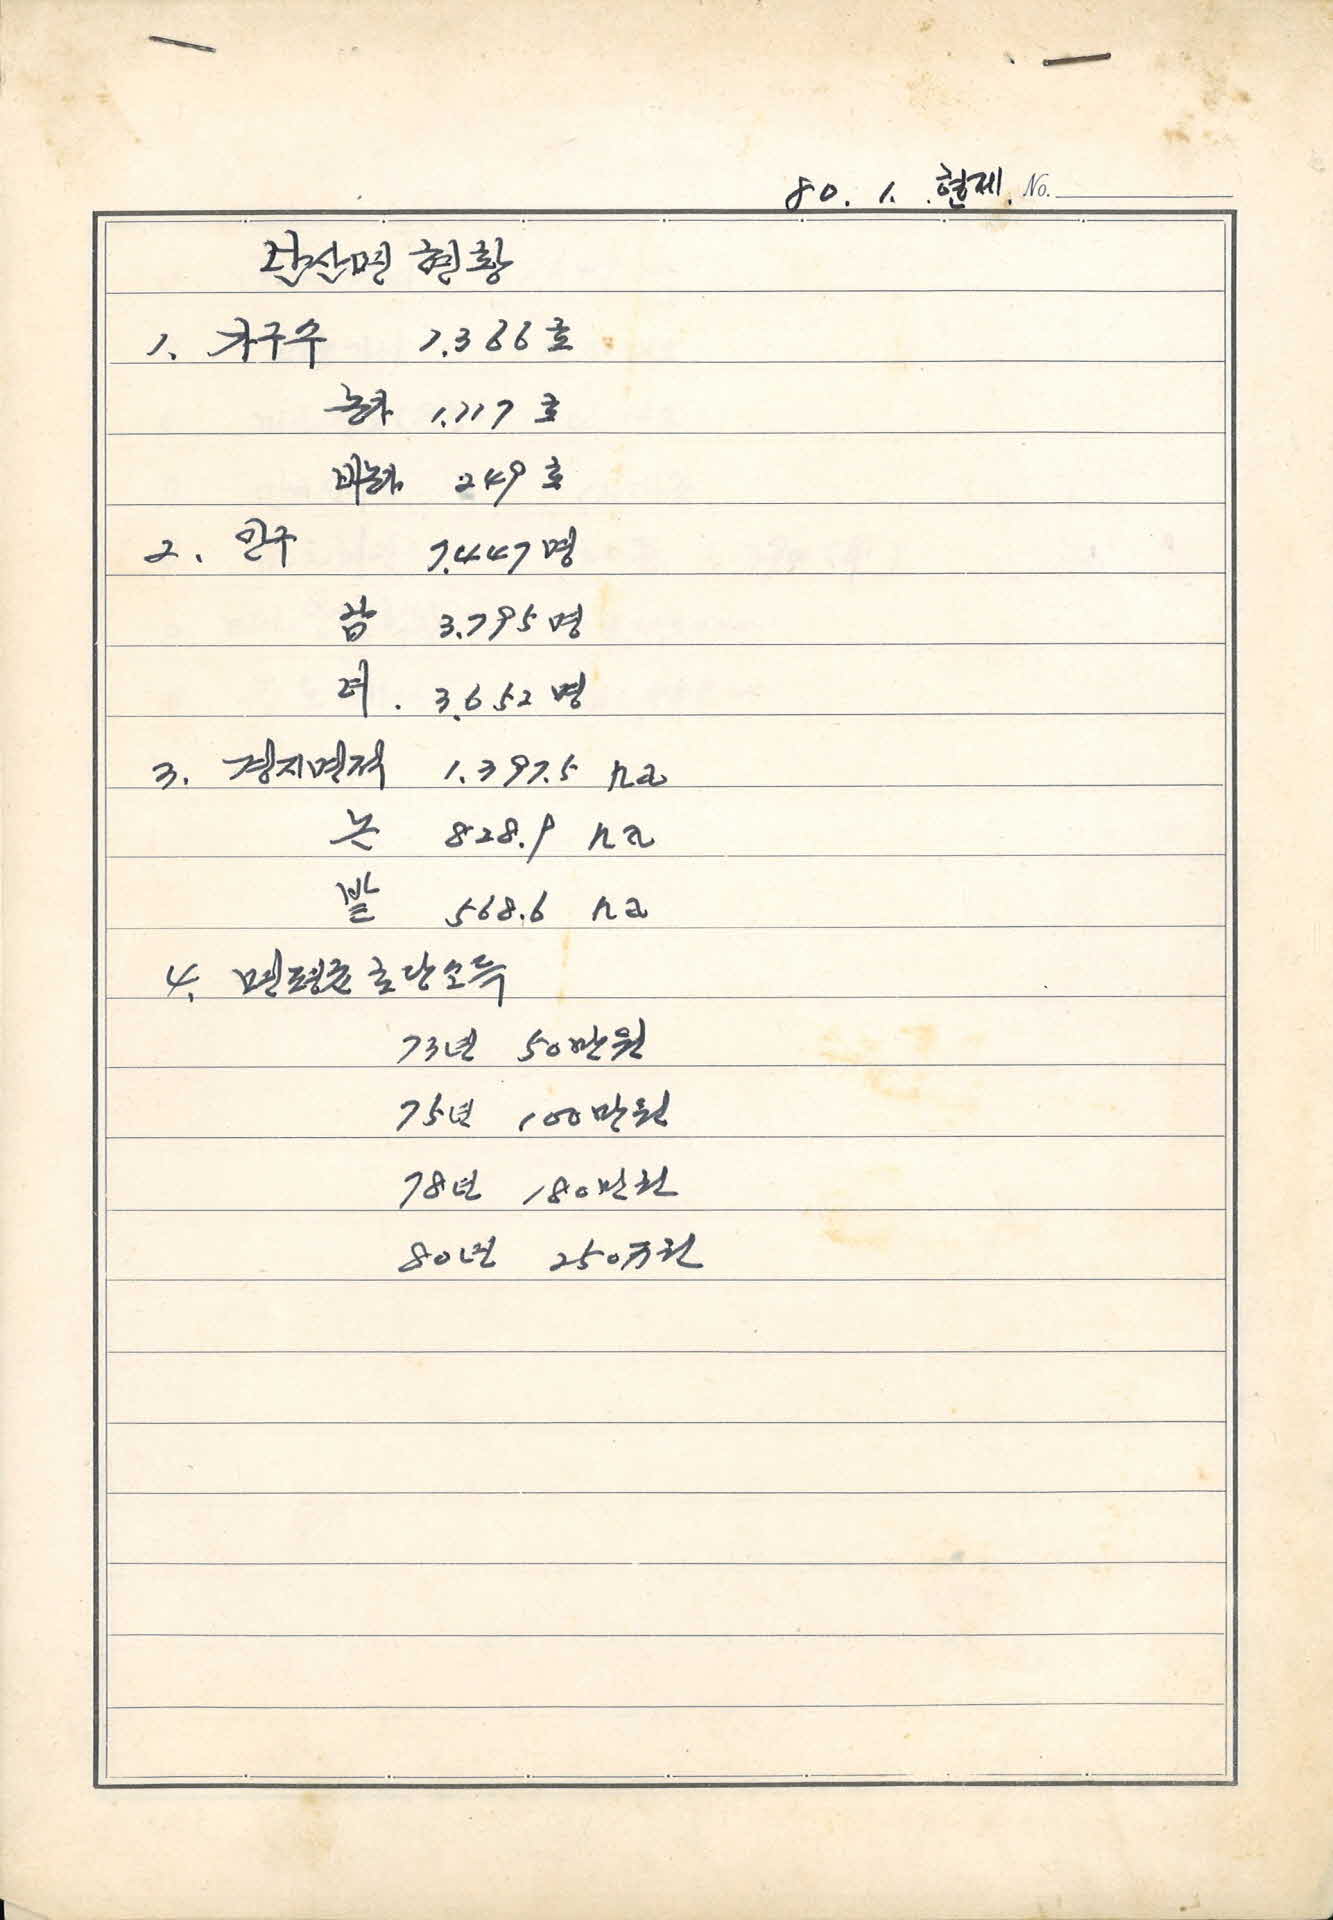 80. 1. 현제. No.
건산면 현황
1. 가구수 1.366호
농가 1.117호
비농가 249호
2. 인구 7.447명
남 3.795명
여. 3.652명
3. 경지면적 1.397.5 ha
논 828.9 ha
밭 568.6 ha
4. 면평균 호당소득
73년 50만원
75년 100만원
78년 180만원
80년 250万원